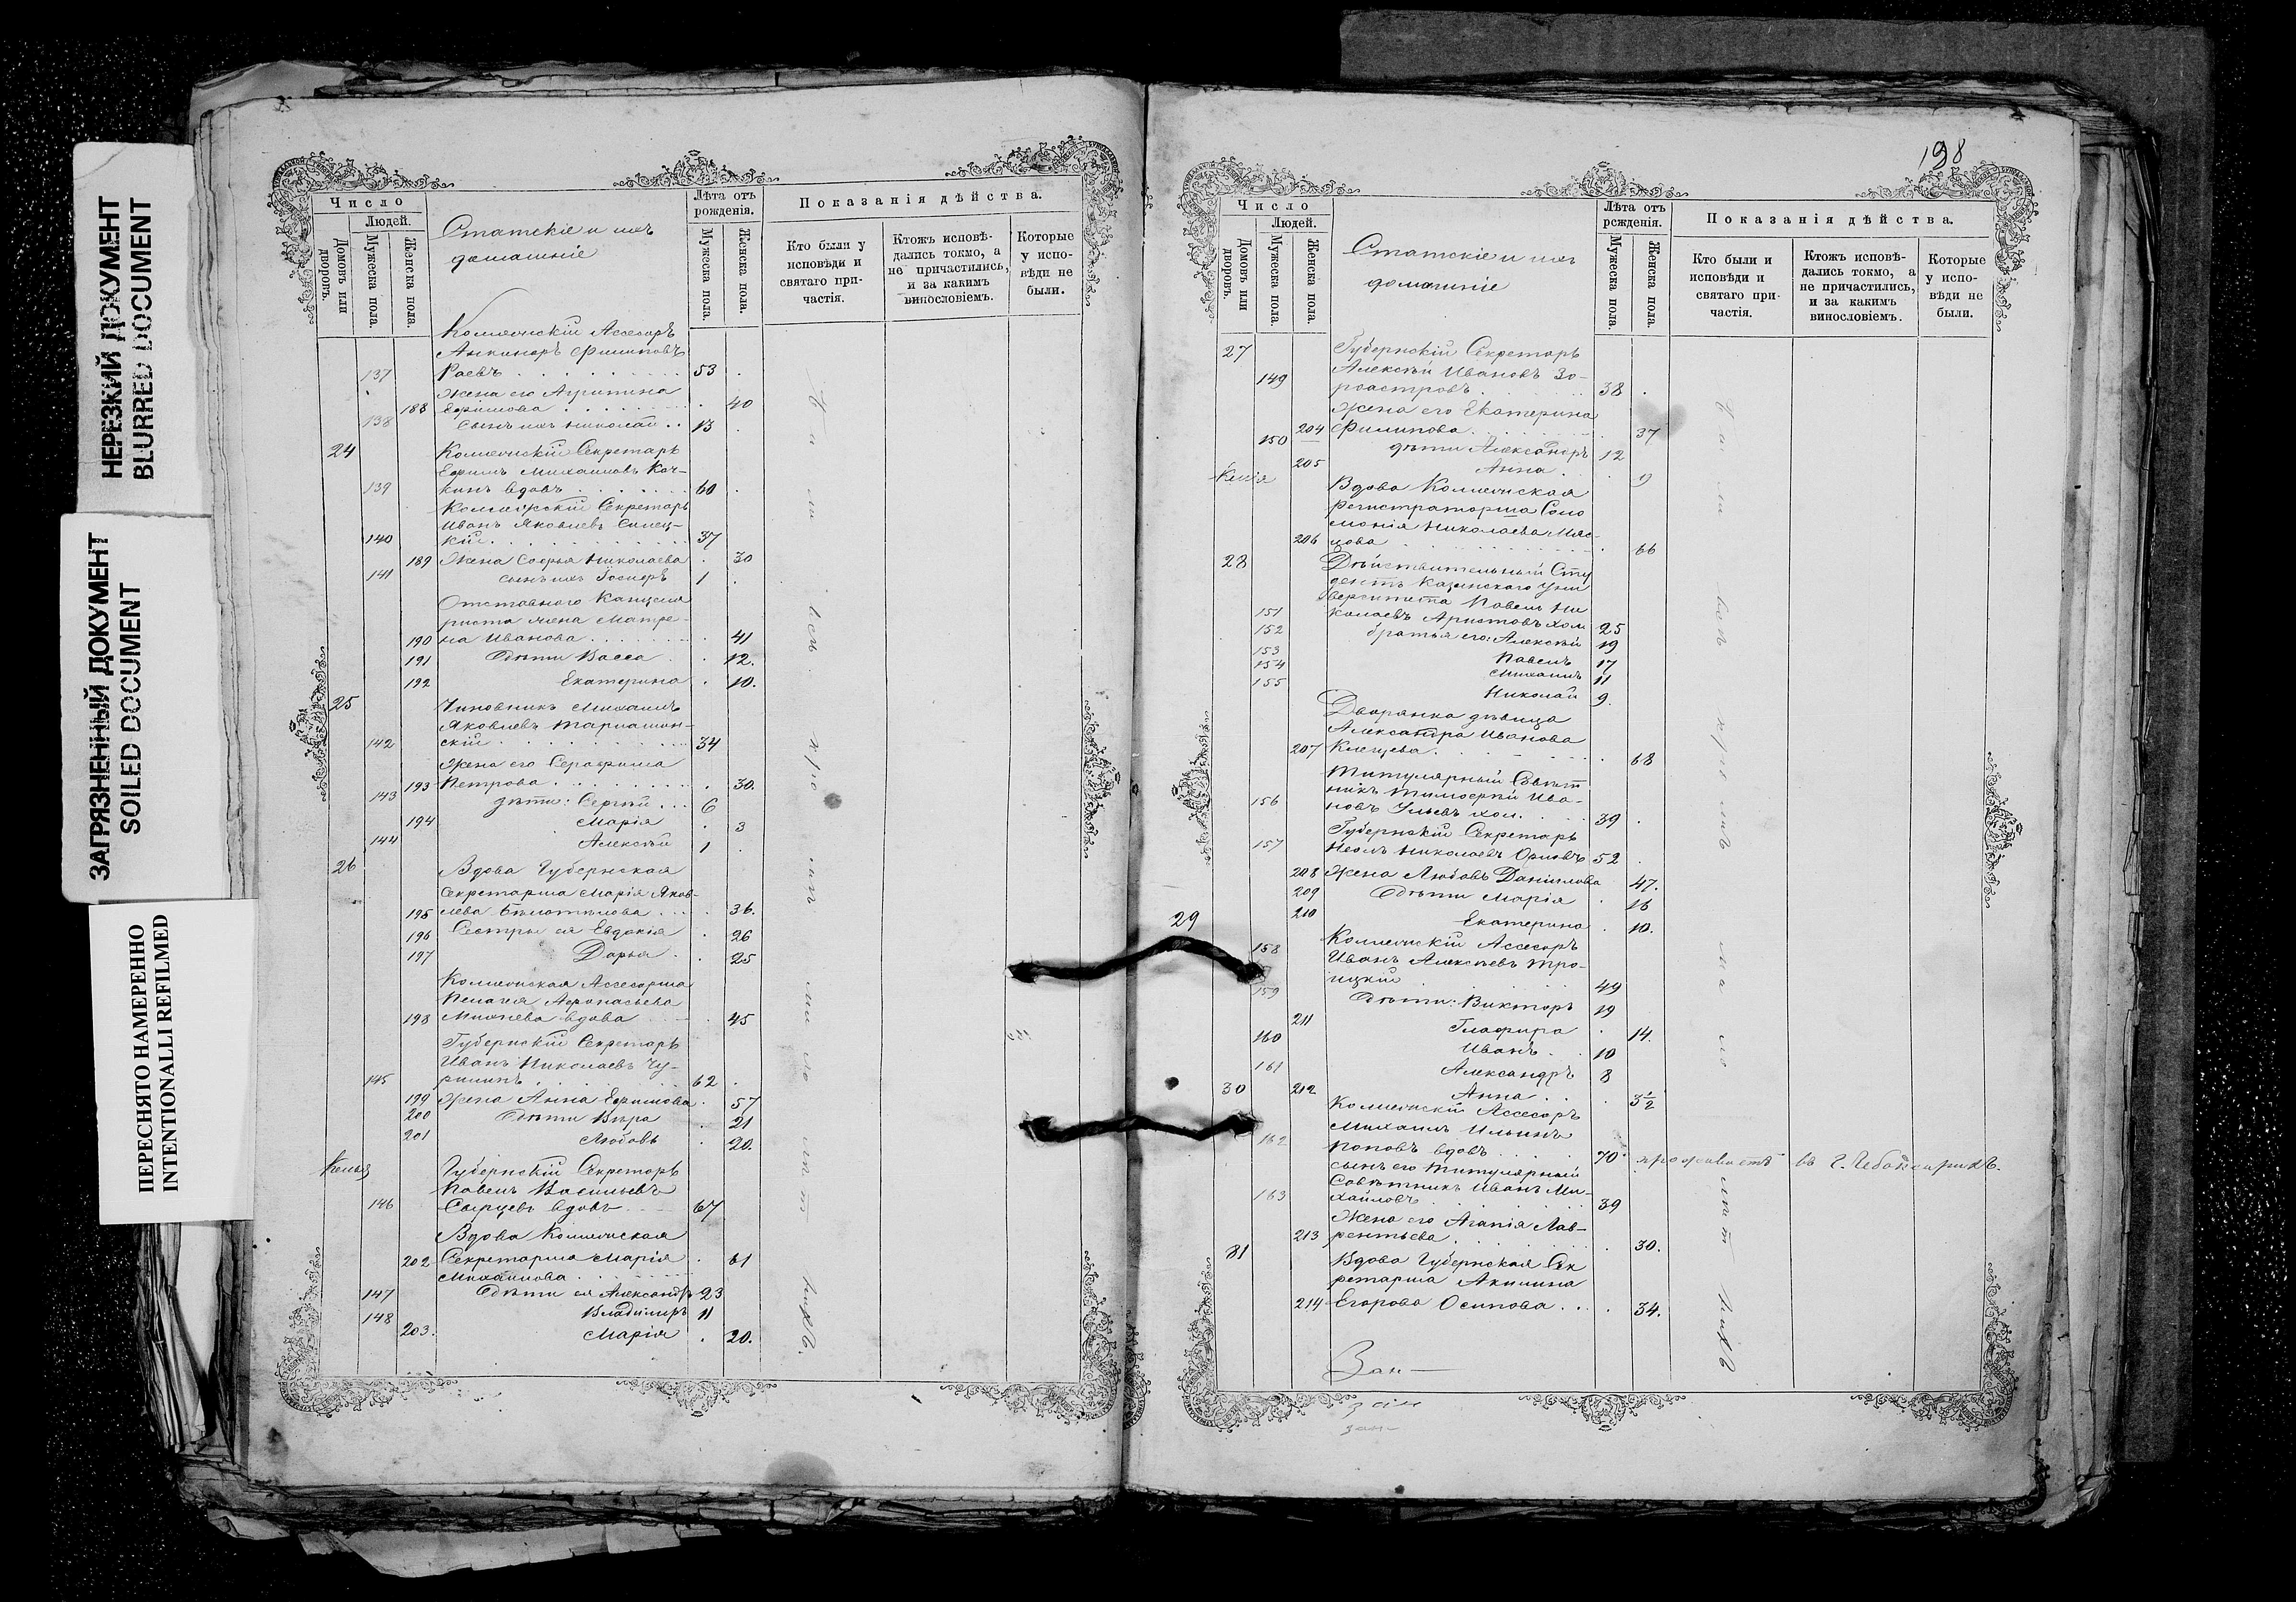 НЕРЕЗКИЙ ДОКУМЕНТ
BLURRED DOCUMENT
ЗАГРЯЗНЕННЫЙ ДОКУМЕНТ
SOILED DOCUMENT
ПЕРЕСНЯТО НАМЕРЕННО
INTENTIONALLI REFILMED
Число
Людей.
Домовъ или дворовъ.
Мужеска пола.
Женска пола.
Статскіе и ихъ
домашніе
Лѣта отъ рожденія.
Мужеска пола.
Женска пола.
Показанія дѣйства.
Кто были у исповѣди и святаго причастія.
Ктожъ исповѣдались токмо, а не причастились, и за какимъ винословіемъ.
Которые у исповѣди не были.
Коллежскій Ассесоръ
Филиповъ
137 Раевъ 53
Жена его Агрипина
188 Ефимова 40
138 Сынъ ихъ Николай 13
24 Коллежскій Секретарь
Ефимъ Михаиловъ Коч-
139 кинъ вдовъ 60
Коллежскій Секретарь
Иванъ Яковлевъ Силец-
140 кій 37
189 Жена Софья Николаева 30
141 сынъ ихъ 1
Отставного Канцеля
риста жена Матре-
190 на Иванова 41
191 Дѣти Васса 12.
192 Екатерина 10.
25 Чиновникъ Михаилъ
Яковлевъ
142 скій 34
Жена его Серафима
193 Петрова 30.
143 дѣти: Сергѣй 6
194 Марія 3
144 Алексѣй 1
26 Вдова Губернская
Секретарша Марія Яков-
195 лева 36.
196 Сестры ея Евдокія 26
197 Дарья 25
Коллежская Ассесорша
Пелагея Афонасьева
198 Михѣева вдова 45
Губернскій Секретарь
Иванъ Николаевъ Чу-
145 рилинъ 62
199 Жена Анна Ефимова 57
200 Дѣти Вѣра 21
201 Любовь 20.
Келья Губернскій Секретарь
Павелъ Васильевъ
146 Сырцевъ вдовъ 67
Вдова Коллежская
202 Секретарша Марія 61
Михаилова
147 Дѣти ея Александръ 23
148 Владимиръ 11
203. Марія 20.
198
Число
Людей.
Домовъ или дворовъ.
Мужеска пола.
Женска пола.
Статскіе и ихъ
домашніе
Лѣта отъ рожденія.
Мужеска пола.
Женска пола.
Показанія дѣйства.
Кто были и исповѣди и святаго причастія.
Ктожъ исповѣдались токмо, а не причастились, и за какимъ винословіемъ.
Которые у исповѣди не были.
27 Губернскій Секретарь
Алексѣй Ивановъ Зо-
149 роастровъ 38
Жена его Екатерина
204 Филипова 37
150 дѣти Александръ 12
205 Анна 9
Келія Вдова Коллежская
Регистраторша Соло
монія Николаева Мяс-
206 66
28 Дѣйствительный Сту
дентъ Казанского Уни
верситета Павелъ Ни
151 колаевъ Аристовъ хол 25
152 братья его: Алексѣй 19
153 Павелъ 17
154 Михаилъ 11
155 Николай 9.
Дворянка дѣвица
Александра Иванова
207 68
Титулярный Совѣт
никъ Тимофей Ива-
156 новъ хол. 39
Губернскій Секретарь
157 Николаевъ Орловъ 52
208 Жена Любовь Даніилова 47.
209 Дѣти Марія 16
210 Екатерина 10.
29
158 Коллежскій Ассесоръ
Иванъ Алексѣевъ Тро-
ицкій 49
159 Дѣти: Викторъ 19
211 Глафира 14.
160 Иванъ 10
161 Александръ 8
30 212 Анна 3½
Коллежскій Ассесоръ
Михаилъ Ильинъ
162 Поповъ вдовъ 70 проживаетъ въ г. Чебоксарахъ.
сынъ его Титулярный
Совѣтникъ Иванъ Ми-
163 хайловъ 39
Жена его Агапія Лав-
213 рентьева 30.
31 Вдова Губернская Сек
ретарша Акилина
214 Егорова Осипова 34.
Зап